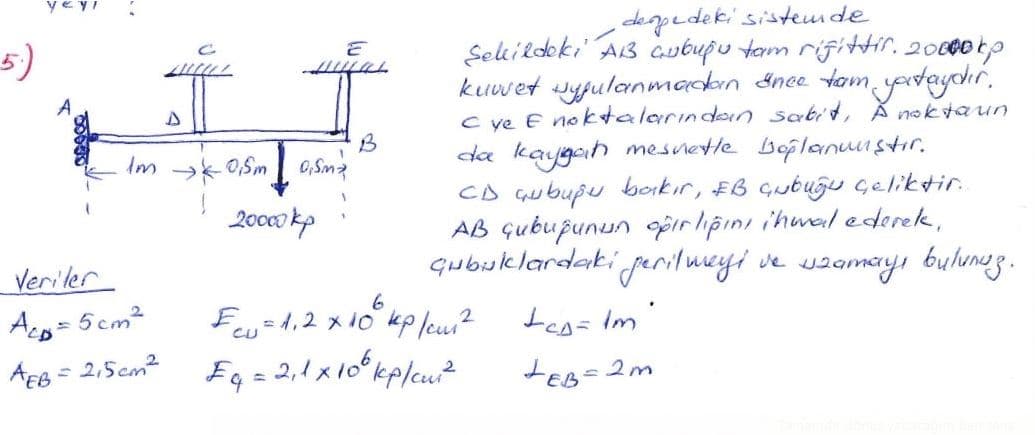 5.)
C
E
A
D
B
1m
0,5m
0,5m
20000kp
dengedeki sistemde
Şekildeki AB çubuğu tam rijittir. 20000kp
kuvvet uygulanmadan önce tam yataydır.
C ve E noktalarından sabit, A noktasın
da kaygan mesnetle bağlanmıştır.
CD çubuğu bakır, EB çubuğu çeliktir.
AB çubuğunun ağırlığını ihmal ederek,
çubuklardaki gerilmeyi ve uzamayı bulunuz.
Veriler
A_CD = 5cm² E_cu = 1,2 x 10⁶ kp/cm² L_CD = 1m
A_EB = 2,5cm² E_ç = 2,1 x 10⁶ kp/cm² L_EB = 2m